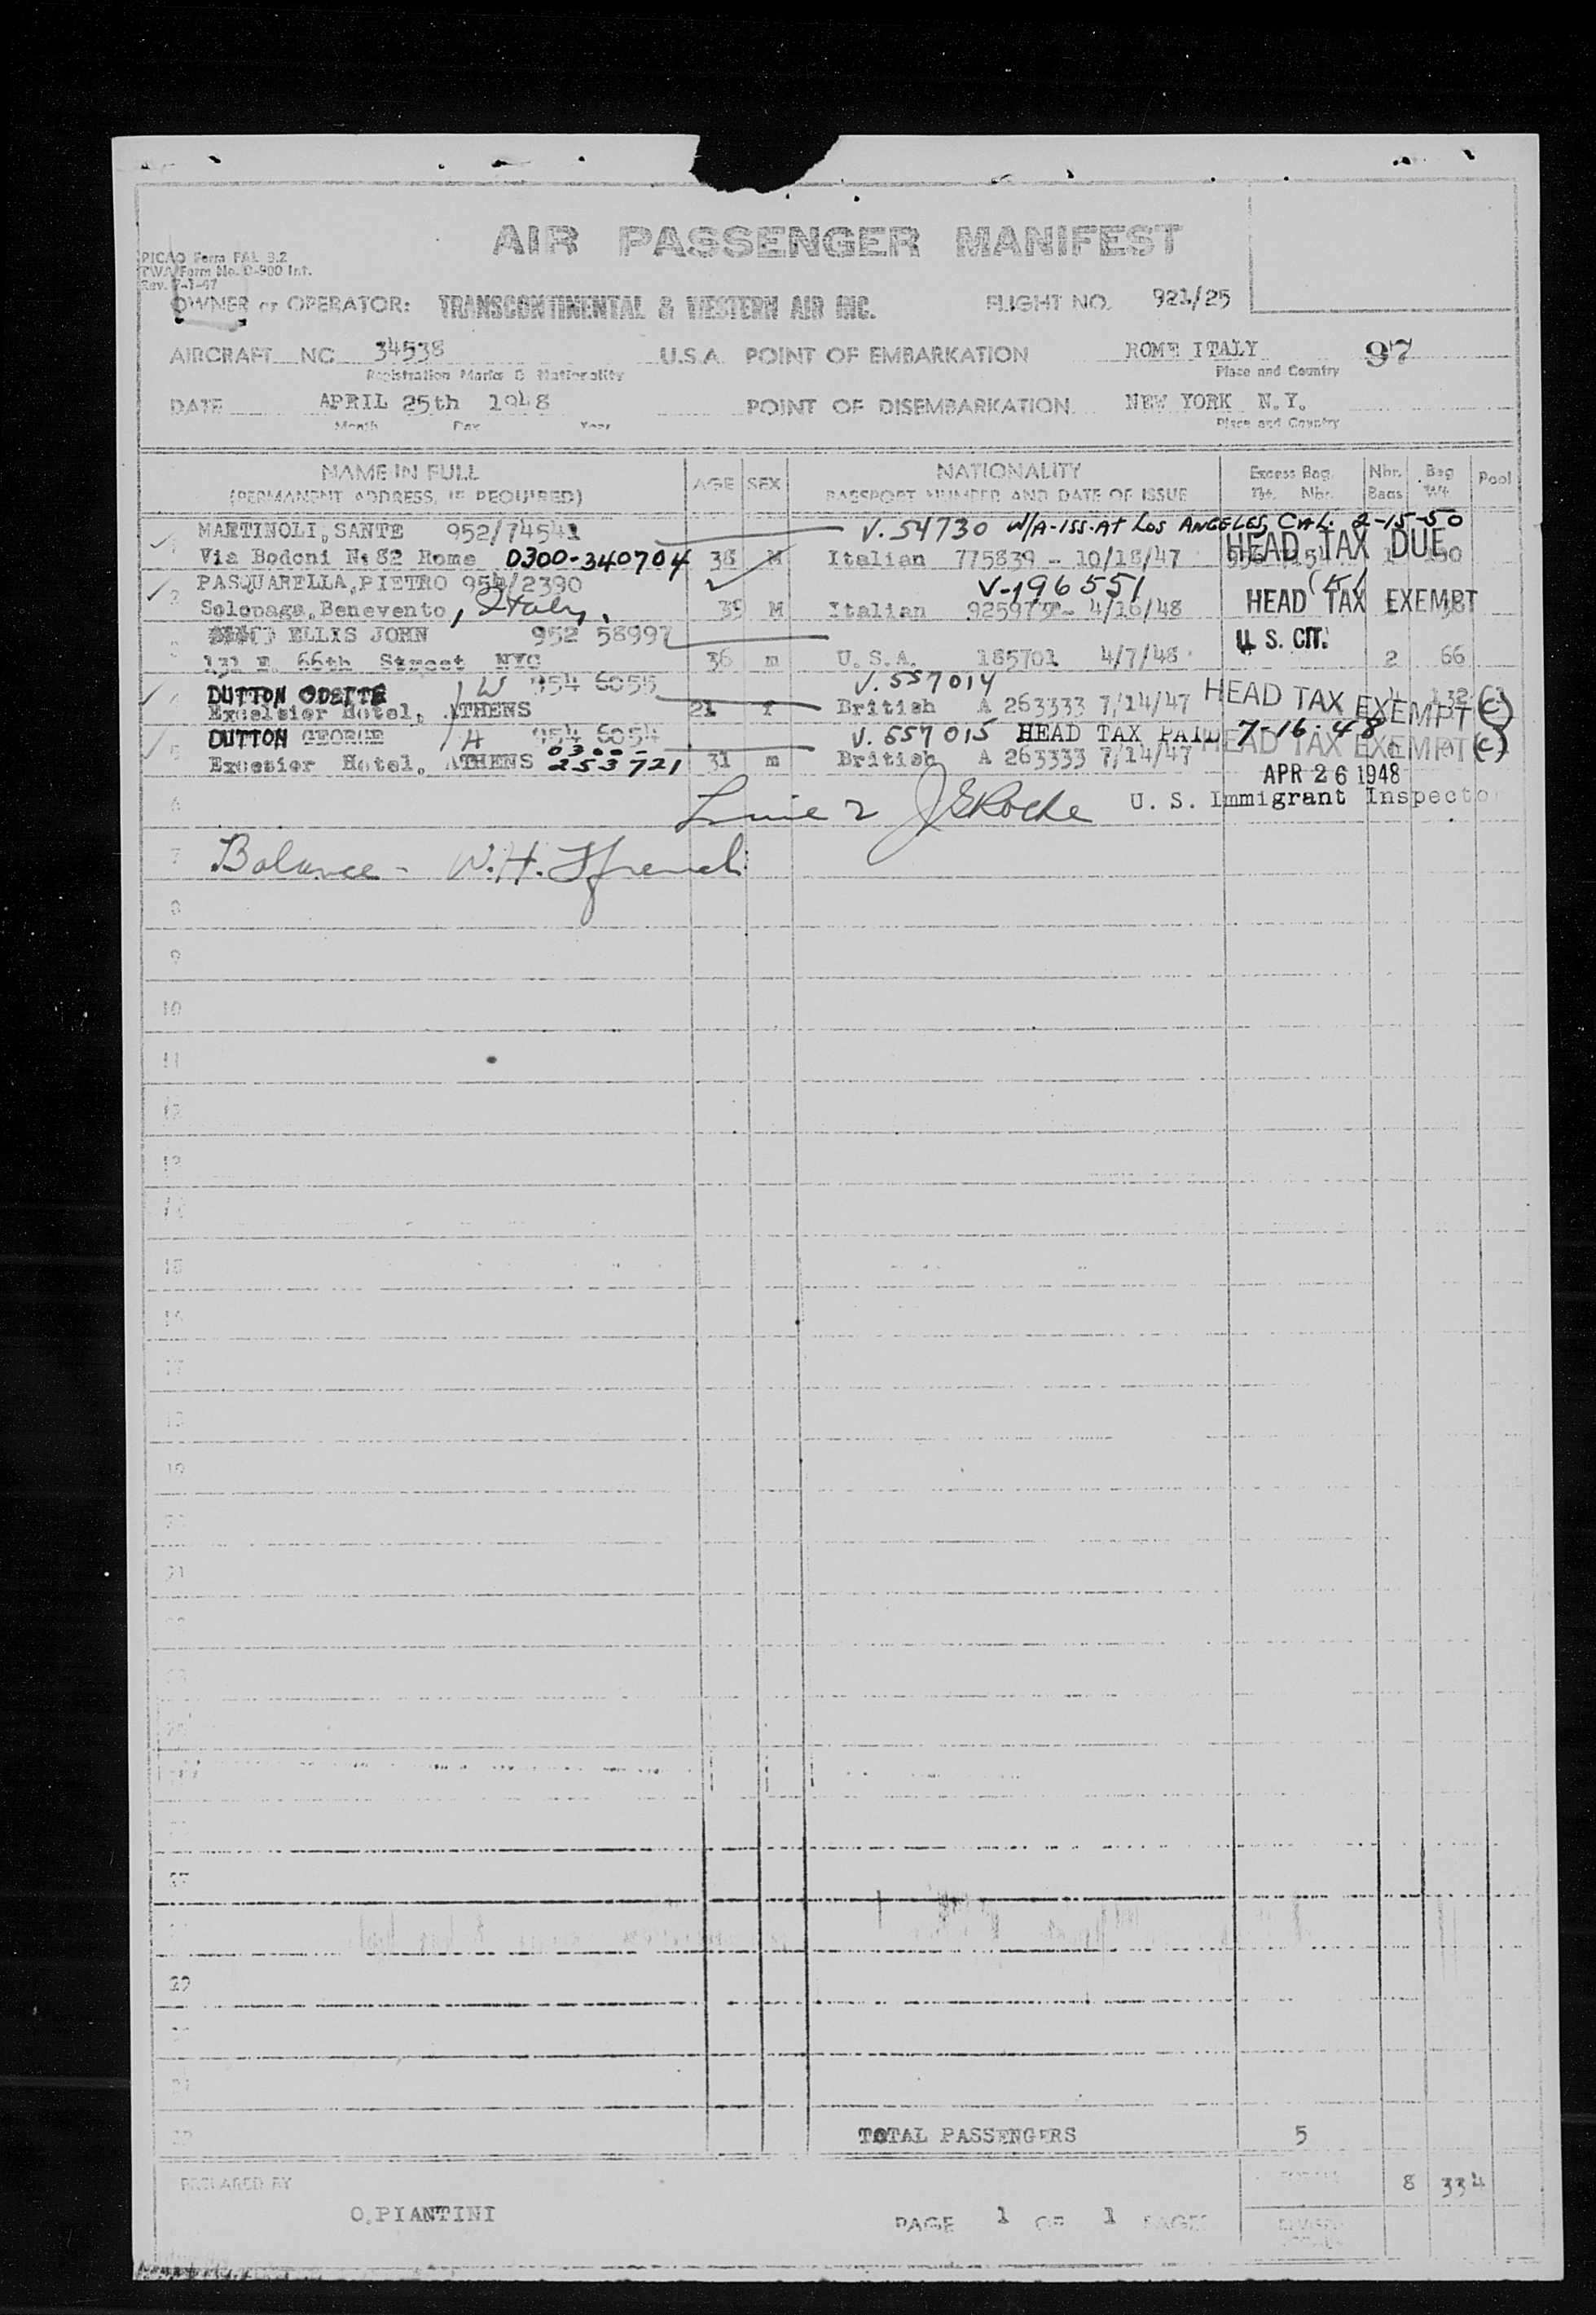 AIR PASSENGER MANIFEST
PICAO Form FAL 3.2
TWA Form No. O-900 Int.
Rev. 7-1-47
OWNER or OPERATOR: TRANSCONTINENTAL & WESTERN AIR INC. FLIGHT NO. 921/25
AIRCRAFT NC 34538 U.S.A. POINT OF EMBARKATION ROME ITALY 97
Registration Marks & Nationality Place and Country
DATE APRIL 25th 1948 POINT OF DISEMBARKATION NEW YORK N.Y.
Month Day Year Place and Country
NAME IN FULL AGE SEX NATIONALITY Excess Bag. Nbr. Bag Pool
(PERMANENT ADDRESS, IF REQUIRED) PASSPORT NUMBER AND DATE OF ISSUE Tkt. Nbr. Bags Wt.
MARTINOLI, SANTE 952/74541 V. 54730 W/A-ISS. At Los ANGELES, CAL. 2-15-50
1 Via Bodoni N: 82 Rome 0300-340704 38 M Italian 775839 - 10/18/47 HEAD TAX DUE
PASQUARELLA, PIETRO 954/2390 V-196551 (K)
2 Solopaga, Benevento, Italy. 39 M Italian 4/16/48 HEAD TAX EXEMPT
ELLIS JOHN 952 58997 U. S. CIT.
3 131 E. 66th Street NYC 36 m U.S.A. 185701 4/7/48 2 66
DUTTON ODETTE W 954 6055 V. 557014
4 Excelsier Hotel, ATHENS 21 f British A 263333 7/14/47 HEAD TAX EXEMPT (C) 132
DUTTON GEORGE H 954 6054 V. 557015 HEAD TAX PAID 7-16-48
0300-
5 Excesier Hotel, ATHENS 253721 31 m British A 263333 7/14/47 HEAD TAX EXEMPT (C)
APR 26 1948
6 Line 2 J E Roche U. S. Immigrant Inspector
7 Balance - W. H.
8
9
10
11
12
13
14
15
16
17
18
19
20
21
29
TOTAL PASSENGERS 5
PREPARED BY TOTALS 8 334
O. PIANTINI PAGE 1 OF 1 PAGES